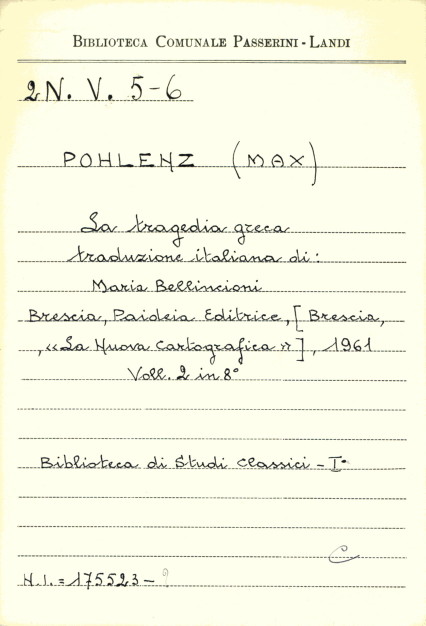 BIBLIOTECA COMUNALE PASSERINI - LANDI
2 N. V. 5-6
POHLENZ (MAX)
La tragedia greca
traduzione italiana di:
Maria Bellincioni
Brescia, Paideia Editrice, [Brescia,
, «La Nuova Cartografica»], 1961
Voll. 2 in 8°
Biblioteca di Studi Classici - I°
C
N.I. = 175523 -